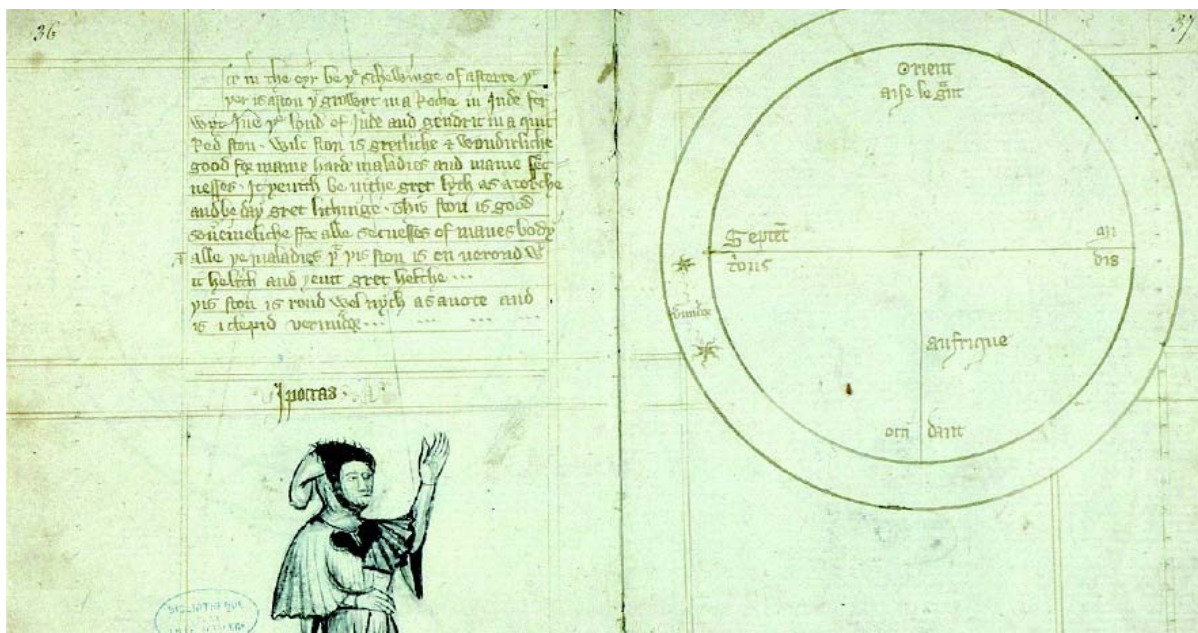 36
in the eyr be yᵉ schewinge of asterre yᵗ
yer is aston yᵗ growyt in a Roche in Inde fer
wyt Ine yᵉ lond of Inde and gendrit in a quit
Red ston. wilc ston is gretliche & wondirliche
good for manie harde maladies and manie sec
nesses. It yeuith be nithe gret lych as a torche
and be day gret lichinge. This ston is good
souereineliche ffor alle secnesses of manes body
alle ye maladies yᵗ yis ston is on
it helith and yeuit gret helthe ...
yis ston is rond wel nych as a note and
is iclepid
Ipocras.
BIBLIOTHEQUE
37
Orient
aise le grant
Septen
trions
an
dis
aufrique
occi dant